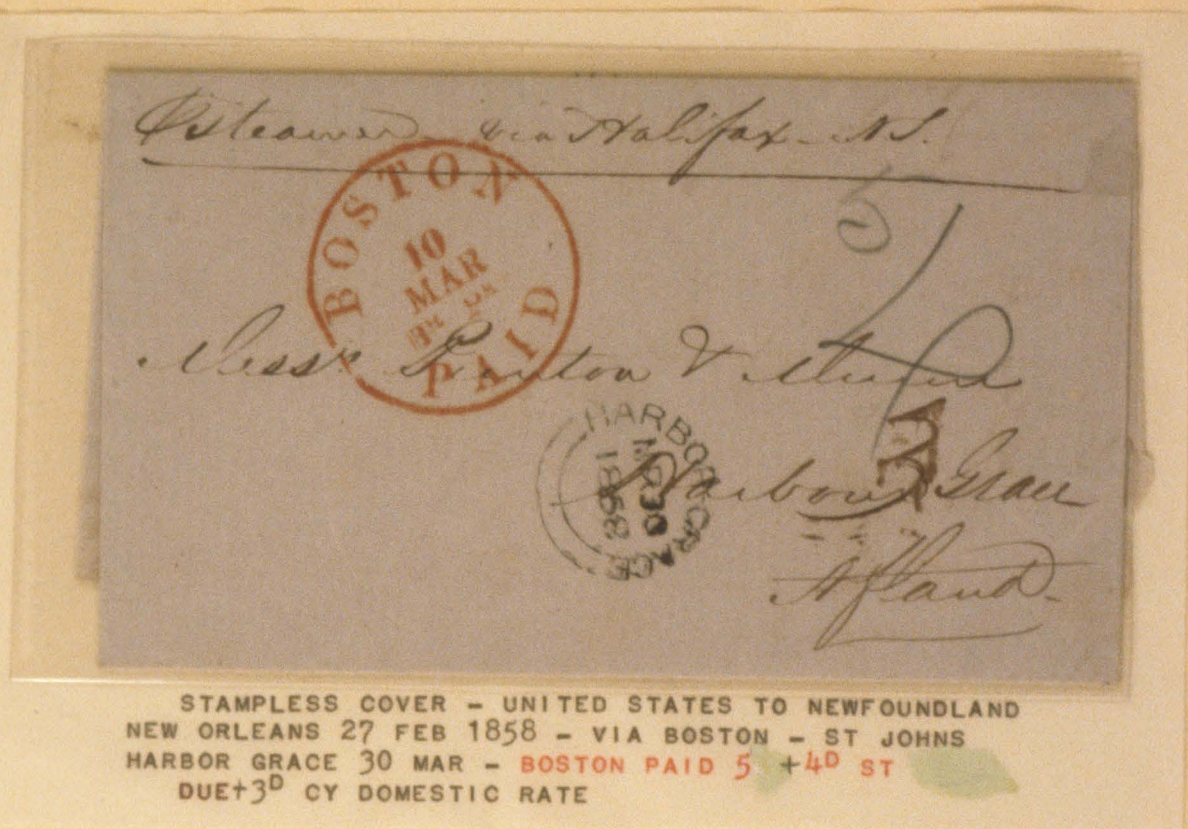 Steamer via Halifax - N.S.
BOSTON
10
MAR
PAID
5
Mess^rs &
HARBOR GRACE
MR 30
1858
Harbour Grace
Nfland -
STAMPLESS COVER - UNITED STATES TO NEWFOUNDLAND
NEW ORLEANS 27 FEB 1858 - VIA BOSTON - ST JOHNS
HARBOR GRACE 30 MAR - BOSTON PAID 5 +4D ST
DUE+3D CY DOMESTIC RATE